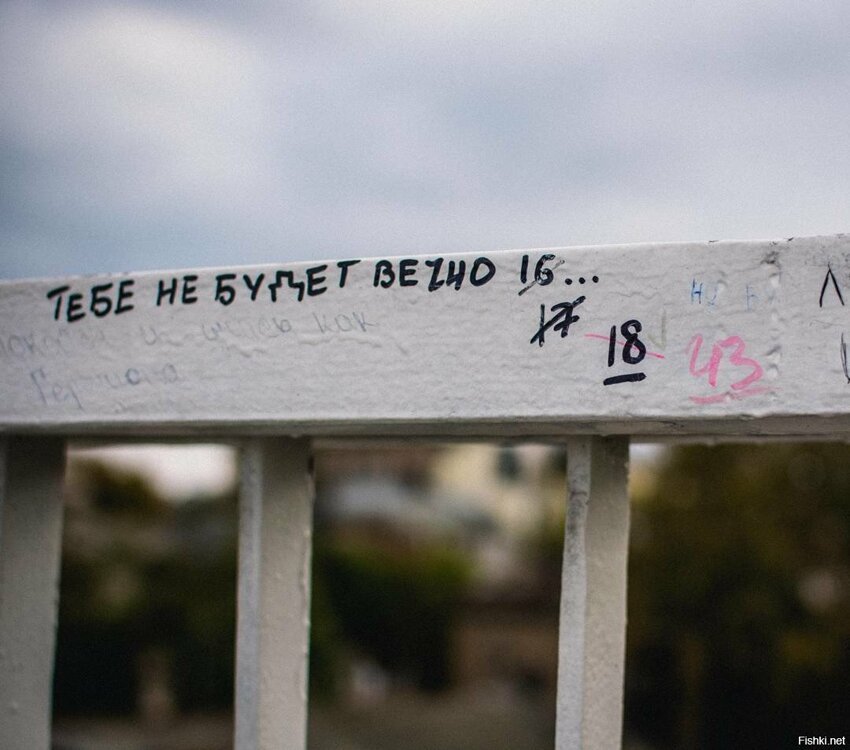 ТЕБЕ НЕ БУДЕТ ВЕЧНО 16...
17
18 43
как
Fishki.net